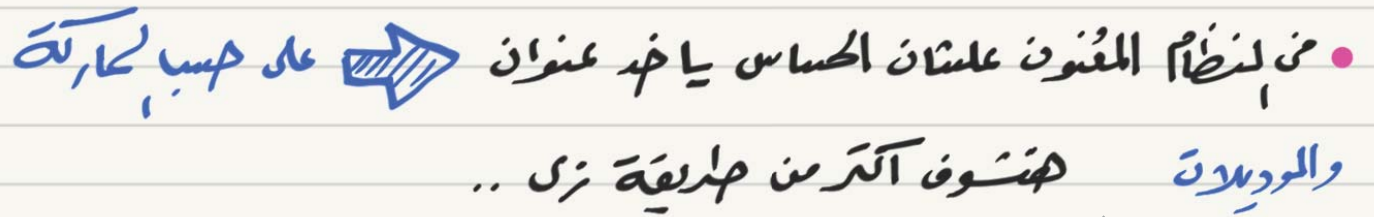 • في النظام المُعَنون علشان الحساس ياخد عنوان ⇐ على حسب الماركة
والموديلات هتشوف أكتر من طريقة زى ..